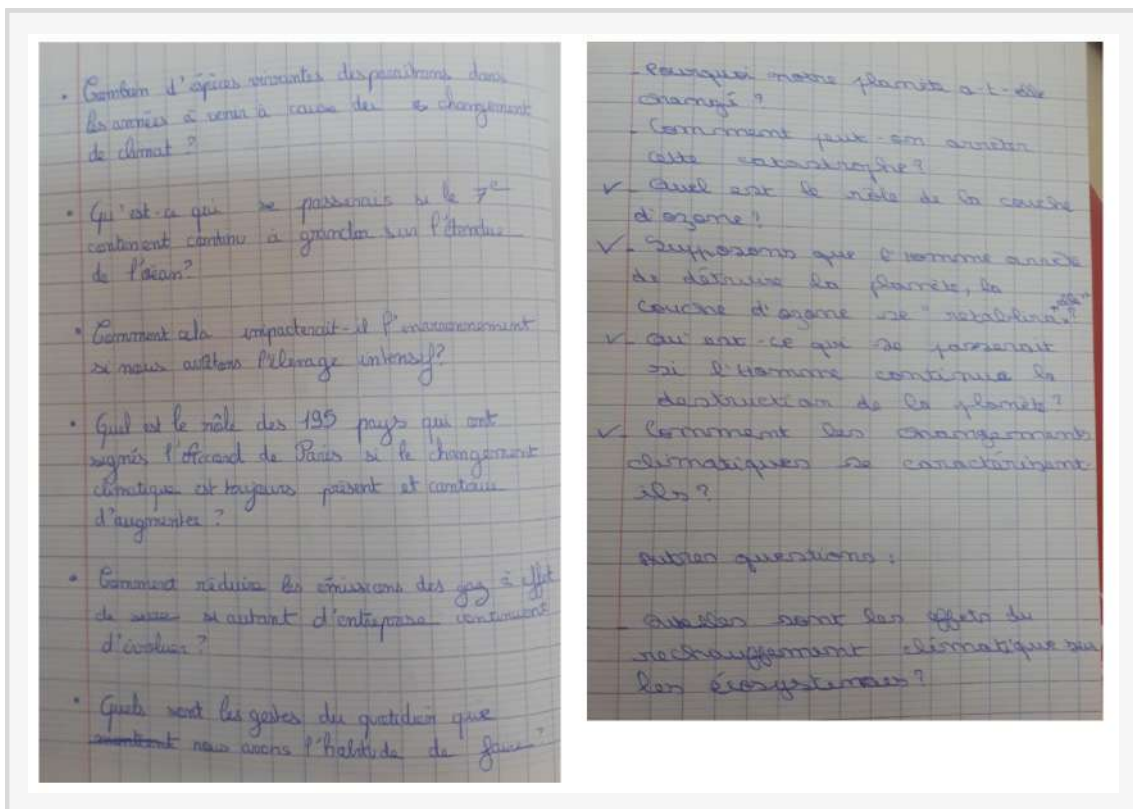 • Combien d'espèces vivantes disparaitrons dans
les années à venir à cause du changement
de climat ?
• Qu'est-ce qui se passerais si le 7e
continent continu à grandir sur l'étendue
de l'océan?
• Comment cela impacterait-il l'environnement
si nous arrêtons l'élevage intensif?
• Quel est le rôle des 195 pays qui ont
signés l'Accord de Paris si le changement
climatique est toujours présent et continu
d'augmenter ?
• Comment réduire les émissions des gaz à effet
de serre si autant d'entreprise continuent
d'évoluer ?
• Quels sont les gestes du quotidien que
nous avons l'habitude de faire ?
- Pourquoi notre planète a-t-elle
changé ?
- Comment peut-on arrêter
cette catastrophe?
✓ - Quel est le rôle de la couche
d'ozone?
✓ - Supposons que l'homme arrête
de détruire la planète, la
couche d'ozone se "rétablira"-elle ?
✓ - Qu'est-ce qui se passerait
si l'Homme continue la
destruction de la planète?
✓ - Comment les changements
climatiques se caractérisent-
ils ?
Autres questions :
- Quelles sont les effets du
rechauffement climatique sur
les écosystèmes?